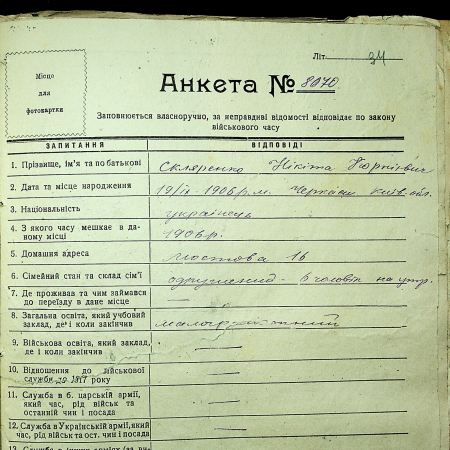 Літ. 94
Місце
для
фотокартки
Анкета № 8070
Заповнюється власноручно, за неправдиві відомості відповідає по закону
військового часу
ЗАПИТАННЯ ВІДПОВІДІ
1. Прізвище, ім'я та по батькові Скляренко Нікіта
2. Дата та місце народження 19/IX-1906 р. м. Черкаси Київ. обл.
3. Національність українець
4. З якого часу мешкає в да-
ному місці 1906 р.
5. Домашня адреса Мостова 16
6. Сімейний стан та склад сім'ї одружений - 6 чоловік на утр.
7. Де проживав та чим займався
до переїзду в дане місце —
8. Загальна освіта, який учбовий
заклад, де і коли закінчив малограмотний
9. Військова освіта, який заклад,
де і коли закінчив —
10. Відношення до військової
служби до 1917 року —
11. Служба в б. царській армії,
який час, рід військ та
останній чин і посада —
12. Служба в Українській армії, який
час, рід військ та ост. чин і посада —